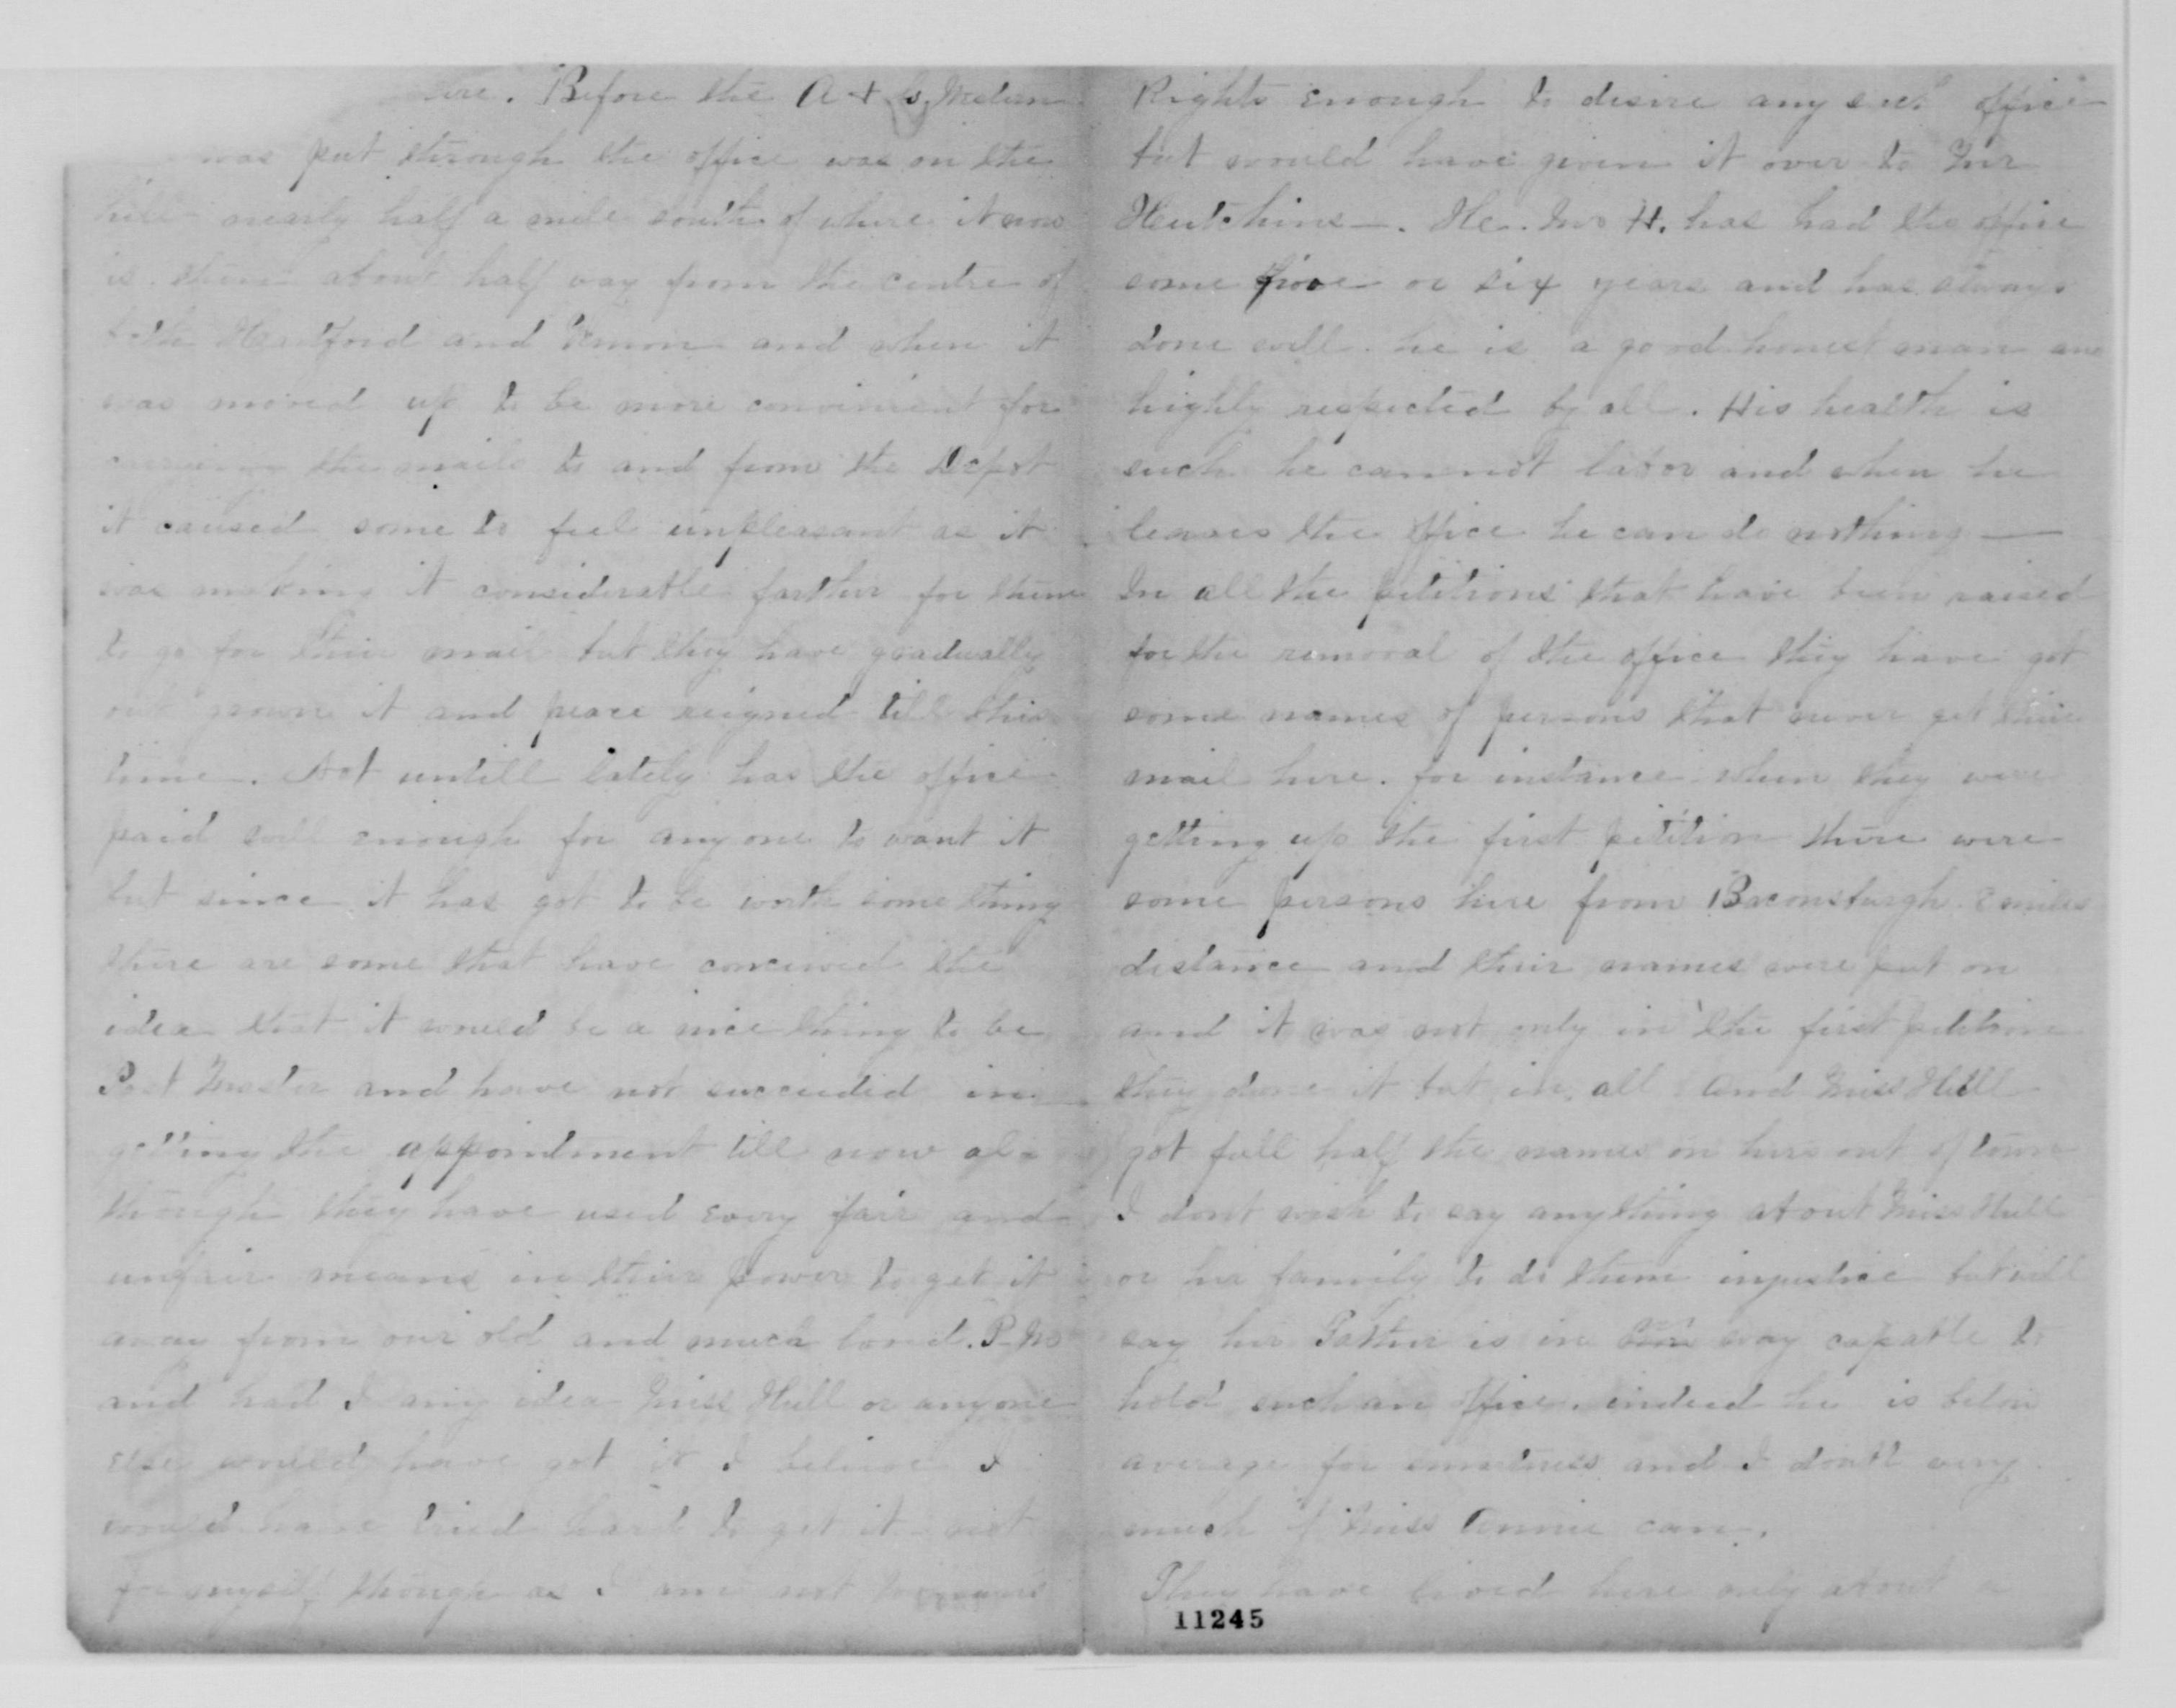 here. Before the A & G. Western
was put through the office was on the
hill nearly half a mile south of where it now
is. then about half way from the centre of
both Hartford and Vernon and when it
was moved up to be more convinient for
carrying the mails to and from the Depot
it caused some to feel unpleasant as it
was making it considerable farther for them
to go for their mail but they have gradually
out grown it and peace reigned till this
time. Not untill lately has the office
paid well enough for any one to want it
but since it has got to be worth something
there are some that have conceived the
idea that it would be a nice thing to be
Post Master and have not succeeded in
getting the appointment till now al-
though they have used every fair and
unfair means in their power to get it
away from our old and much loved. P. M
and had I any idea Miss Hull or anyone
else would have got it I believe I
would have tried hard to get it not
for myself though as I am not Womans
Rights enough to desire any such office
but would have given it over to Mr
Hutchins—. He. Mr H. has had the office
some five or six years and has always
done well. he is a good honest man and
highly respected by all. His health is
such he cannot labor and when he
leaves the office he can do nothing —
In all the petitions that have been raised
for the removal of the office they have got
some names of persons that never get their
mail here. for instance when they were
getting up the first petition there were
some persons here from Baconsburgh miles
distance and their names were put on
and it was not only in the first petition
they done it but in all and Miss Hull
got full half the names on hers out of town
I dont wish to say anything about Miss Hull
or her family to do them injustice but will
say her Father is in no way capable to
hold such an office. indeed he is below
average for smartness and I don't very
much if Miss Annie can.
They have lived here only about a
11245